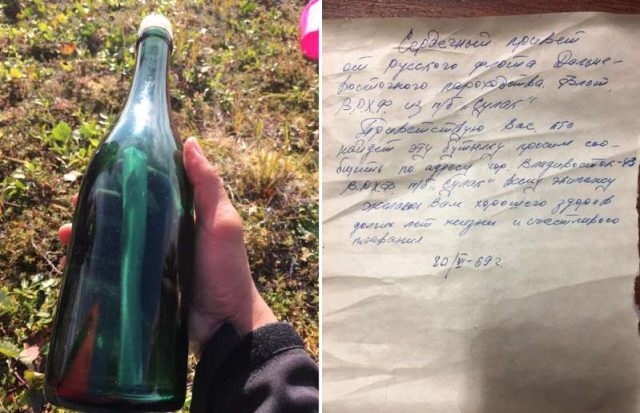 Сердечный привет
от Русского флота Дальне-
восточного пароходства. Флот
В.О.Х.Ф из п/б „Сулак"
Приветствую Вас, кто
найдет эту бутылку просим соо-
бщить по адресу гор Владивосток-43
В.О.Х.Ф п/б „Сулак" всему экипажу
Желаем Вам хорошего здоров
долгих лет жизни и счастливого
плавания
20/VI-69г